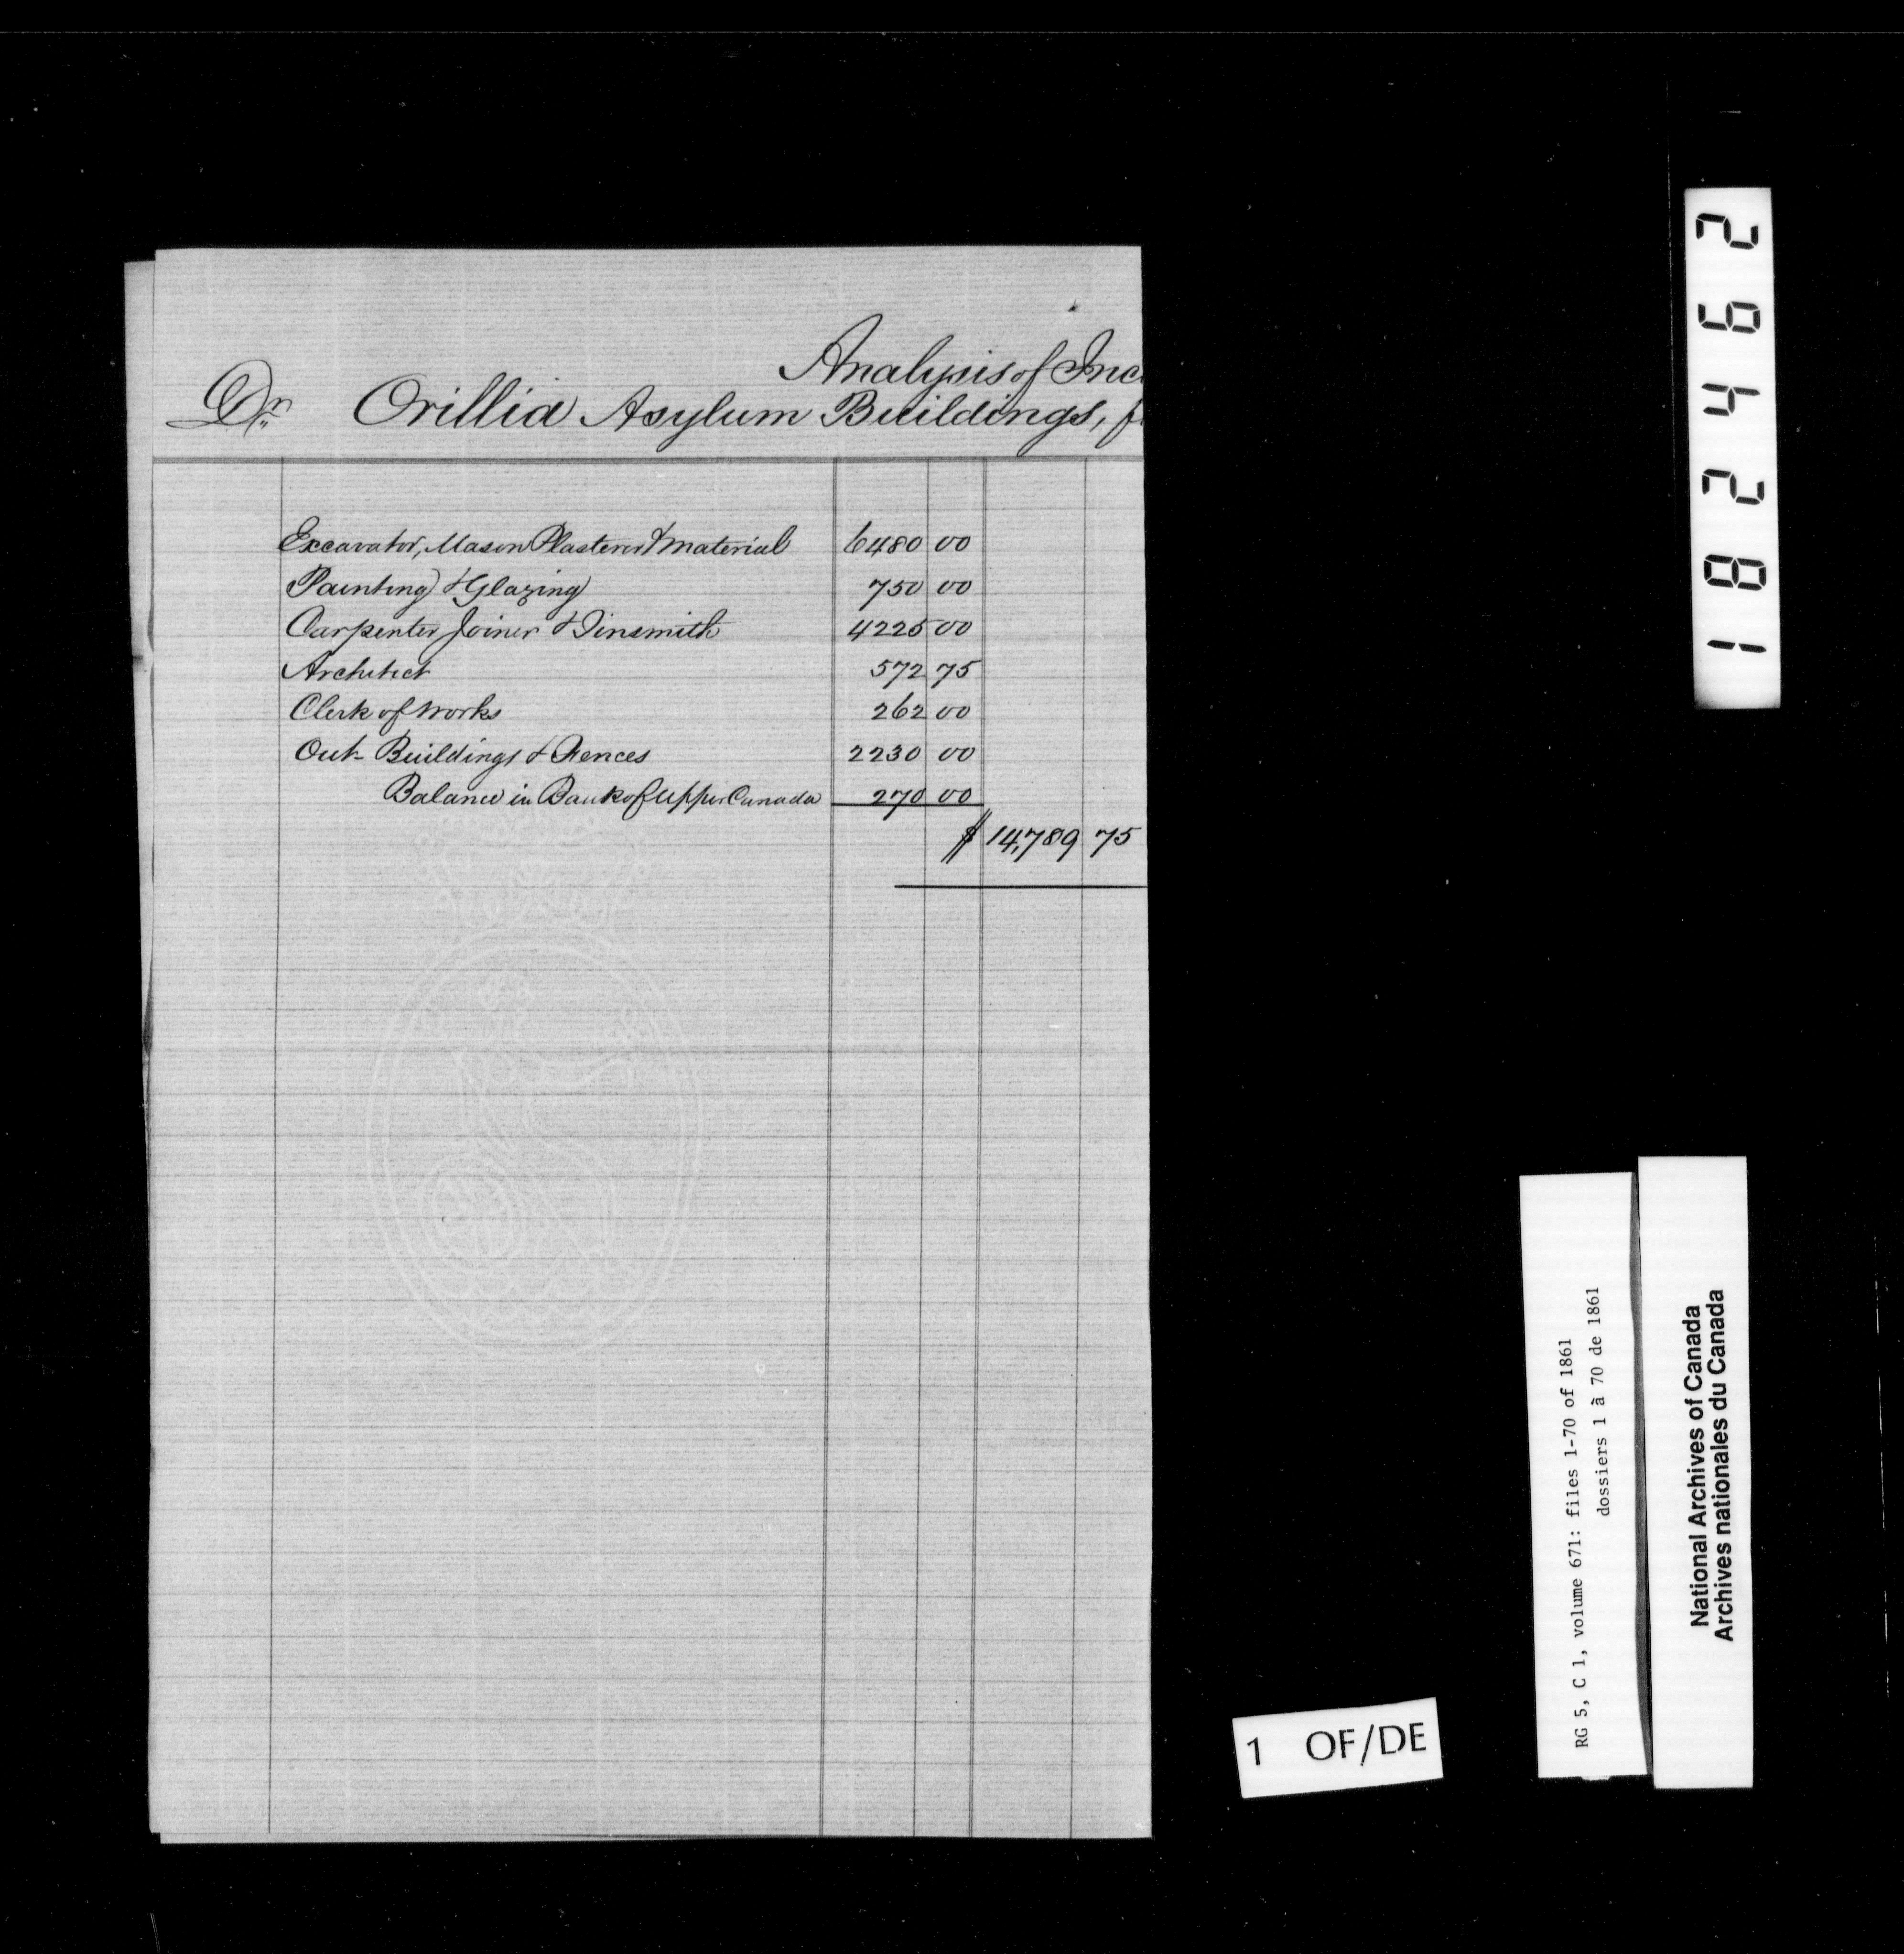 Analysis of Inc
Dr. Orillia Asylum Buildings, f
Excavator, Mason Plasterer & material 6480 00
Painting & Glazing 750 00
Carpenter Joiner & Tinsmith 4225 00
Architect 572 75
Clerk of Works 262 00
Out Buildings & Fences 2230 00
Balance in Bank of Upper Canada 270 00
$ 14,789 75
182462
RG 5, C 1, volume 671: files 1-70 of 1861
dossiers 1 à 70 de 1861
National Archives of Canada
Archives nationales du Canada
1 OF/DE